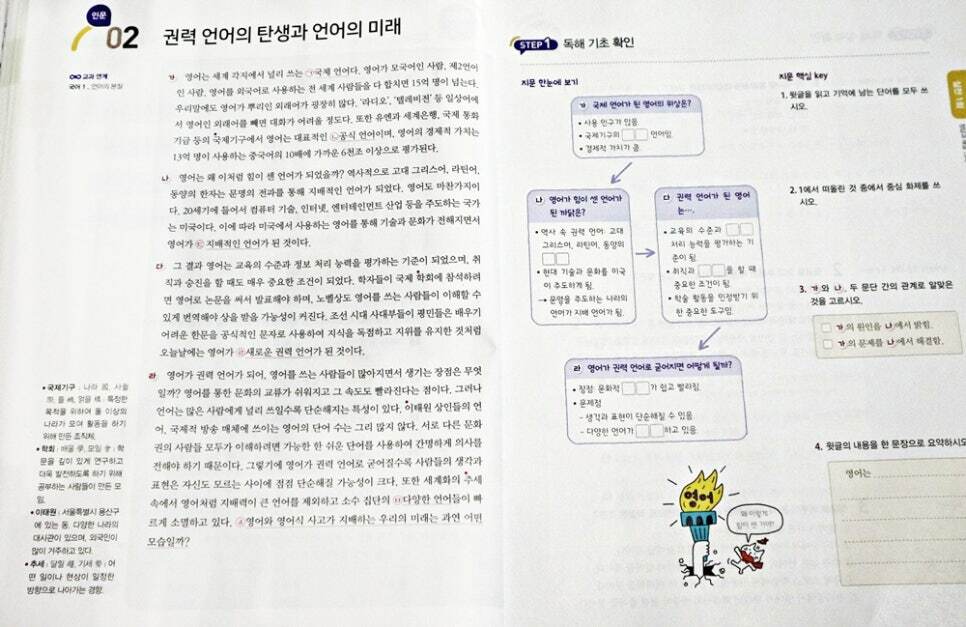 인문
02
권력 언어의 탄생과 언어의 미래
교과 연계
국어 1. 언어의 본질
가 영어는 세계 각지에서 널리 쓰는 ㉠국제 언어다. 영어가 모국어인 사람, 제2언어
인 사람, 영어를 외국어로 사용하는 전 세계 사람들을 다 합치면 15억 명이 넘는다.
우리말에도 영어가 뿌리인 외래어가 굉장히 많다. '라디오', '텔레비전' 등 일상어에
서 영어인 외래어를 빼면 대화가 어려울 정도다. 또한 유엔과 세계은행, 국제 통화
기금 등의 국제기구에서 영어는 대표적인 ㉡공식 언어이며, 영어의 경제적 가치는
13억 명이 사용하는 중국어의 10배에 가까운 6천조 이상으로 평가된다.
나 영어는 왜 이처럼 힘이 센 언어가 되었을까? 역사적으로 고대 그리스어, 라틴어,
동양의 한자는 문명의 전파를 통해 지배적인 언어가 되었다. 영어도 마찬가지이
다. 20세기에 들어서 컴퓨터 기술, 인터넷, 엔터테인먼트 산업 등을 주도하는 국가
는 미국이다. 이에 따라 미국에서 사용하는 영어를 통해 기술과 문화가 전해지면서
영어가 ㉢지배적인 언어가 된 것이다.
다 그 결과 영어는 교육의 수준과 정보 처리 능력을 평가하는 기준이 되었으며, 취
직과 승진을 할 때도 매우 중요한 조건이 되었다. 학자들이 국제 학회에 참석하려
면 영어로 논문을 써서 발표해야 하며, 노벨상도 영어를 쓰는 사람들이 이해할 수
있게 번역해야 상을 받을 가능성이 커진다. 조선 시대 사대부들이 평민들은 배우기
어려운 한문을 공식적인 문자로 사용하여 지식을 독점하고 지위를 유지한 것처럼
오늘날에는 영어가 ㉣새로운 권력 언어가 된 것이다.
라 영어가 권력 언어가 되어, 영어를 쓰는 사람들이 많아지면서 생기는 장점은 무엇
일까? 영어를 통한 문화의 교류가 쉬워지고 그 속도도 빨라진다는 점이다. 그러나
언어는 많은 사람에게 널리 쓰일수록 단순해지는 특성이 있다. 이태원 상인들의 언
어, 국제적 방송 매체에 쓰이는 영어의 단어 수는 그리 많지 않다. 서로 다른 문화
권의 사람들 모두가 이해하려면 가능한 한 쉬운 단어를 사용하여 간명하게 의사를
전해야 하기 때문이다. 그렇기에 영어가 권력 언어로 굳어질수록 사람들의 생각과
표현은 자신도 모르는 사이에 점점 단순해질 가능성이 크다. 또한 세계화의 추세
속에서 영어처럼 지배력이 큰 언어를 제외하고 소수 집단의 ㉤다양한 언어들이 빠
르게 소멸하고 있다. ⓐ영어와 영어식 사고가 지배하는 우리의 미래는 과연 어떤
모습일까?
• 국제기구 : 나라 國, 사이
際, 틀 機, 얽을 構 : 특정한
목적을 위하여 둘 이상의
나라가 모여 활동을 하기
위해 만든 조직체.
• 학회 : 배울 學, 모일 會 : 학
문을 깊이 있게 연구하고
더욱 발전하도록 하기 위해
공부하는 사람들이 만든 모
임.
• 이태원 : 서울특별시 용산구
에 있는 동. 다양한 나라의
대사관이 있으며, 외국인이
많이 거주하고 있다.
• 추세 : 달릴 趨, 기세 勢 : 어
떤 일이나 현상이 일정한
방향으로 나아가는 경향.
STEP 1 독해 기초 확인
지문 한눈에 보기
가 국제 언어가 된 영어의 위상은?
• 사용 인구가 많음.
• 국제기구의 □□ 언어임.
• 경제적 가치가 큼.
나 영어가 힘이 센 언어가
된 까닭은?
• 역사 속 권력 언어: 고대
그리스어, 라틴어, 동양의
□□
• 현대 기술과 문화를 미국
이 주도하게 됨.
→ 문명을 주도하는 나라의
언어가 지배 언어가 됨.
다 권력 언어가 된 영어
는…
• 교육의 수준과 □□
처리 능력을 평가하는 기
준이 됨.
• 취직과 □□을 할 때
중요한 조건이 됨.
• 학술 활동을 인정받기 위
한 중요한 도구임.
라 영어가 권력 언어로 굳어지면 어떻게 될까?
• 장점: 문화적 □□가 쉽고 빨라짐.
• 문제점
- 생각과 표현이 단순해질 수 있음.
- 다양한 언어가 □□하고 있음.
영어
왜 이렇게
힘이 센 거야!
지문 핵심 key
1. 윗글을 읽고 기억에 남는 단어를 모두 쓰
시오.
2. 1에서 떠올린 것 중에서 중심 화제를 쓰
시오.
3. 가와 나, 두 문단 간의 관계로 알맞은
것을 고르시오.
□ 가의 원인을 나에서 밝힘.
□ 가의 문제를 나에서 해결함.
4. 윗글의 내용을 한 문장으로 요약하시오
영어는